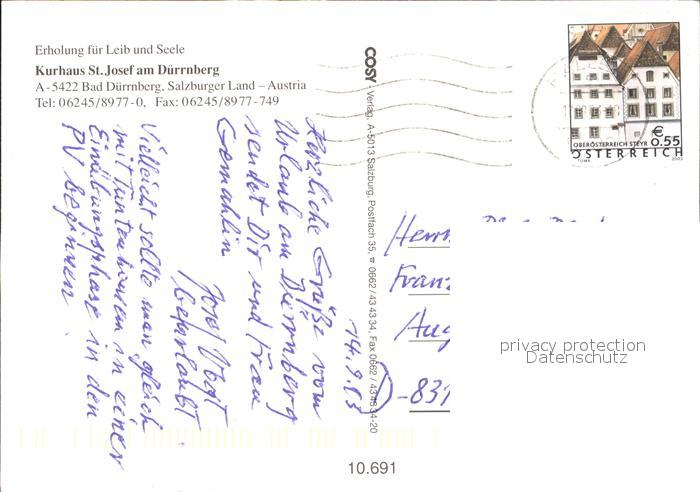 Erholung für Leib und Seele
Kurhaus St. Josef am Dürrnberg
A-5422 Bad Dürrnberg, Salzburger Land – Austria
Tel: 06245/8977-0, Fax: 06245/8977-749
COSY - Verlag, A-5013 Salzburg, Postfach 35, ☎ 0662/43 43 34, Fax 0662 / 43 43 34-20
OBERÖSTERREICH STEYR
€ 0.55
ÖSTERREICH
14.9.03
Herzliche Grüße vom
Urlaub am Dürrnberg
sendet Dir und Frau
Gemahlin
Josef
Vielleicht sollte man gleich
mit in einer
Einübungsphase in den
PV beginnen
Herrn
Franz
Aug
-831
privacy protection
Datenschutz
10.691